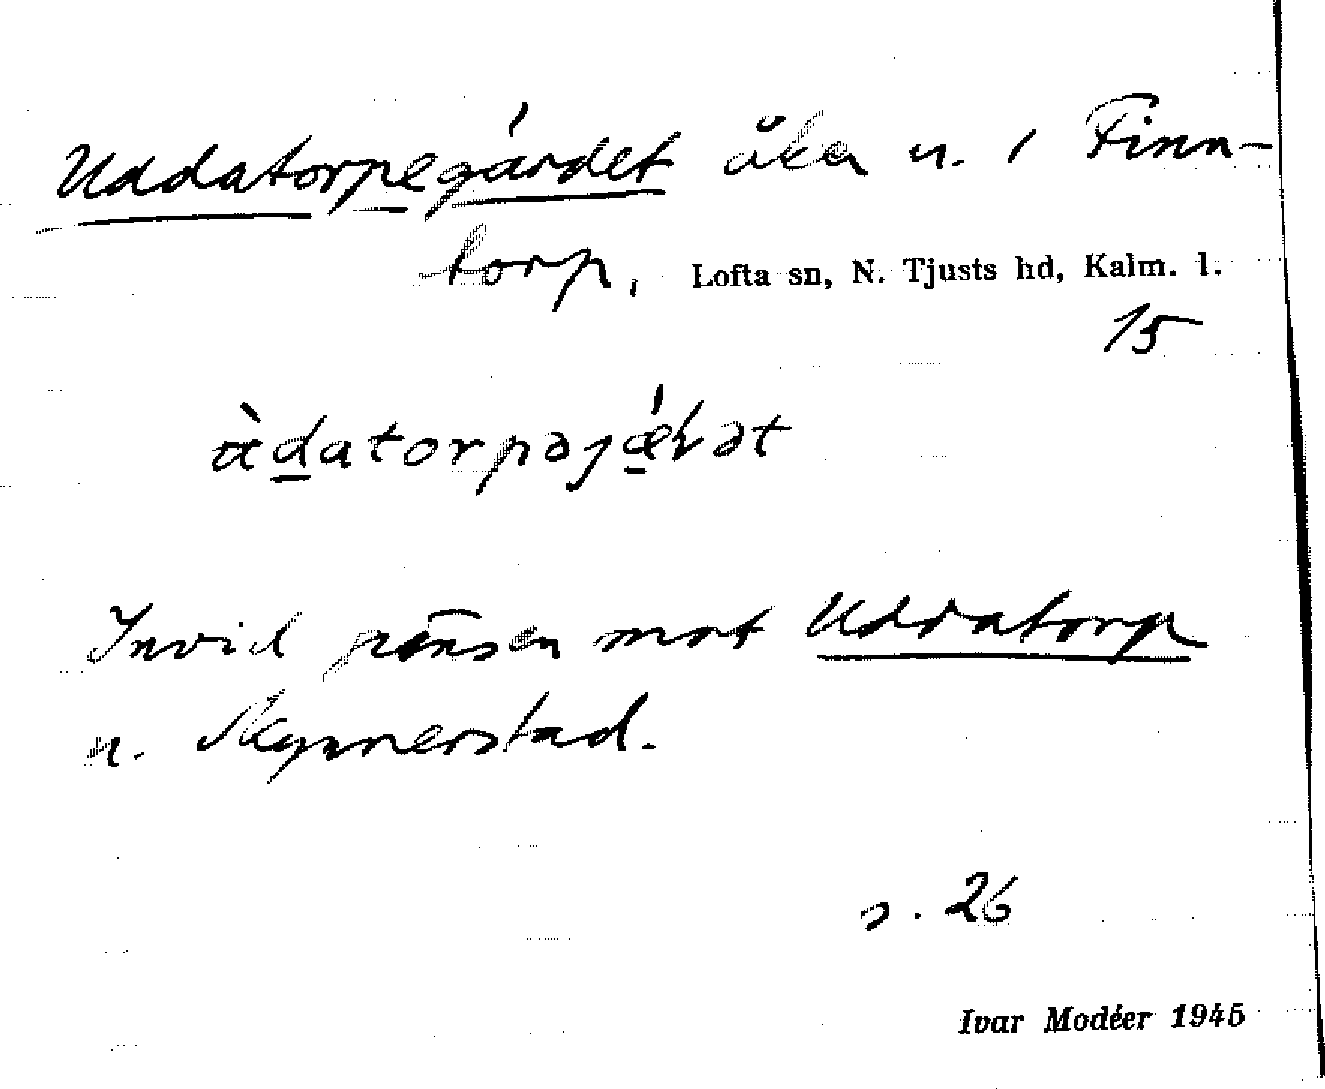 Uddatorpegärdet åker u. / Finn-
torp, Lofta sn, N. Tjusts hd, Kalm. l.
15
Invid gränsen mot Uddatorp
u. Skynnerstad.
s. 26
Ivar Modéer 1945